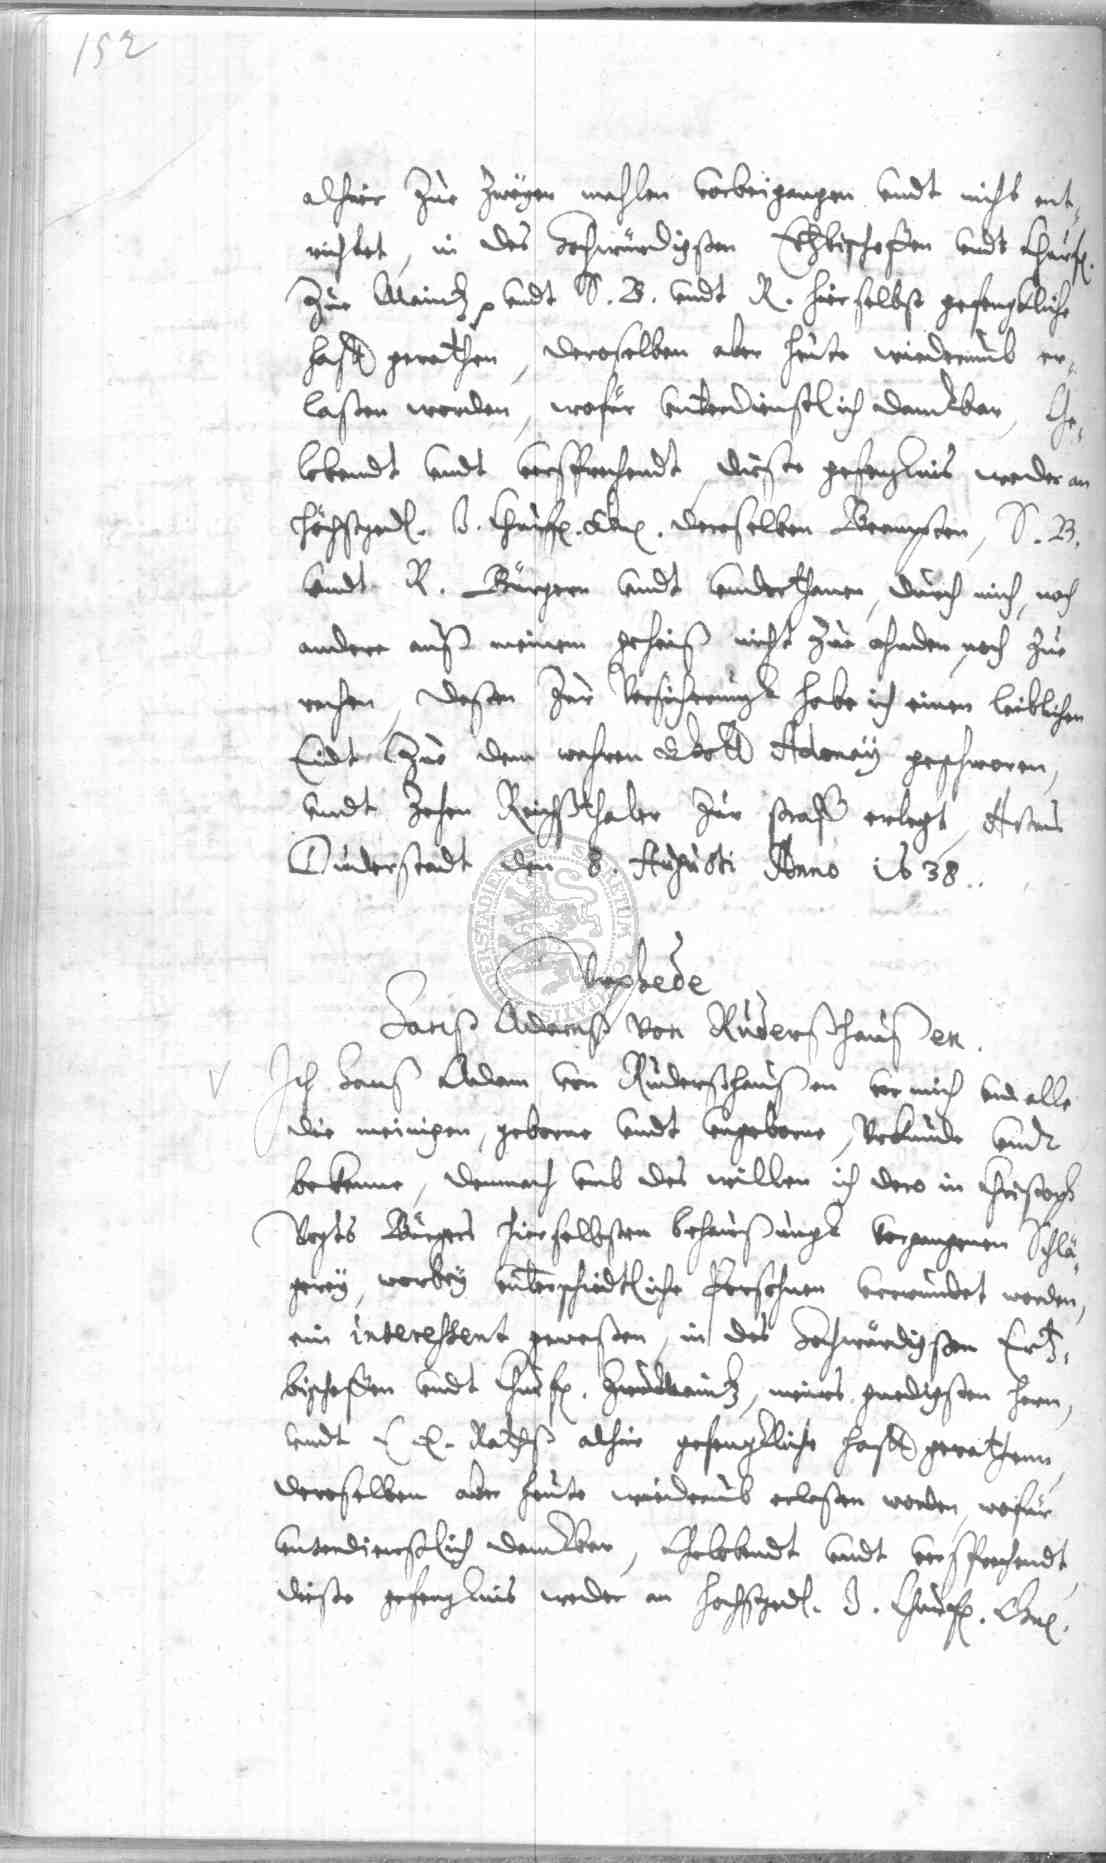 152
alhier zue zweyen mahlen vorbeigangen undt nicht ent-
richtet, in des Hochwürdigsten Ertzbischoffen undt Churf.
zue Maintz p undt S. B. undt R. hierselbst gefengkliche
hafft gerathen, deroselben aber heute wiederumb er-
laßen worden, wofür unterdienstlich danckbar, ge-
lobendt undt versprechendt, dieße gefengknis weder an
höchstged. I. Churf. Gn. deroselben Beampten, S. B.
undt R. Bürgern undt underthanen, durch mich, noch
andere auß meinem geheiß nicht zue ahnden, noch zue
rechen, deßen zur Versicherungk habe ich einen leiblichen
Eidt zue dem wahren Gott Adoney geschworen,
undt zehen Reichßthaler zur straff erlegt, Actum
Duderstadt den 8. Augusti Anno 1638.
Vrphede
Hanß Adamß von Rüderßhaußen.
Ich Hanß Adam von Rüderßhaußen vor mich und alle
die meinigen, geborne undt ungeborne, Vrkunde undt
bekenne, demnach umb des willen ich dero in Christoph
Vogts Bürgers hierselbsten behaußungk vergangenen Schlä-
gerey, worbey unterschiedtliche Persohnen verwundet worden,
ein interessent geweßen, in des Hochwürdigsten Ertz-
bischoffen undt Churf. zue Maintz, meines gnedigsten herrn,
undt E. E. Rathß alhier gefengkliche hafft gerathenn,
deroselben aber heute wiederumb erlaßen worden, wofür
unterdienstlich danckbar, Gelobendt undt versprechendt,
dieße gefengknis weder an höchstged. I. Churf. Gn.